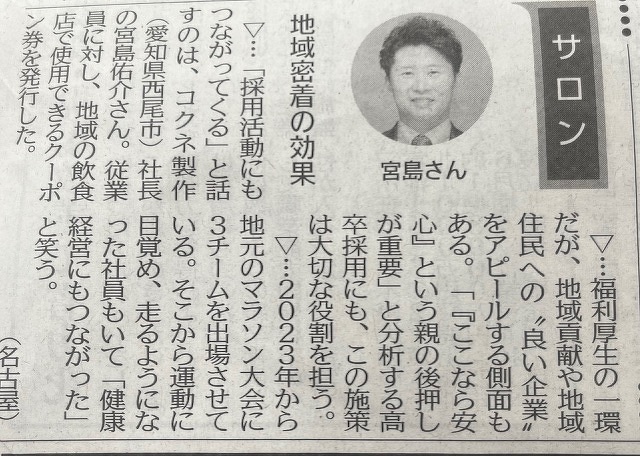 サロン
宮島さん
地域密着の効果
▽…「採用活動にも
つながってくる」と話
すのは、コクネ製作
（愛知県西尾市）社長
の宮島佑介さん。従業
員に対し、地域の飲食
店で使用できるクーポ
ン券を発行した。
▽…福利厚生の一環
だが、地域貢献や地域
住民への〝良い企業〟
をアピールする側面も
ある。「『ここなら安
心』という親の後押し
が重要」と分析する高
卒採用にも、この施策
は大切な役割を担う。
▽…2023年から
地元のマラソン大会に
3チームを出場させて
いる。そこから運動に
目覚め、走るようにな
った社員もいて「健康
経営にもつながった」
と笑う。
（名古屋）